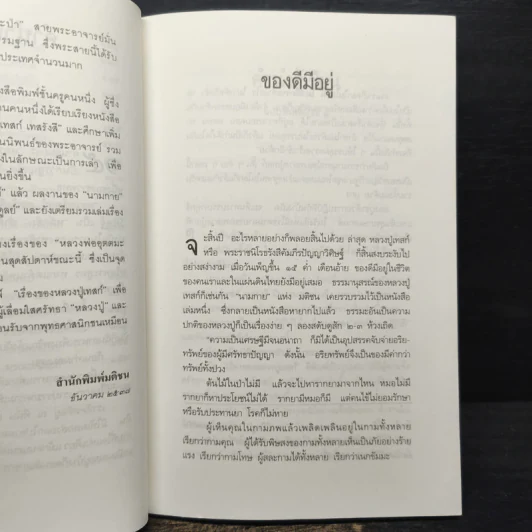 ะป่า" สายพระอาจารย์มั่น
รมฐาน ซึ่งพระสายนี้ได้รับ
ประเทศจำนวนมาก
สือพิมพ์ชั้นครูคนหนึ่ง ผู้ซึ่ง
คนหนึ่งได้เรียบเรียงหนังสือ
เทสก์ เทสรังสี" และศึกษาเพิ่ม
นนิพนธ์ของพระอาจารย์ รวม
งในลักษณะเป็นการเล่า เพื่อ
นยิ่งขึ้น
" แล้ว ผลงานของ "นามกาย"
ดูลย์" และยังเตรียมรวมเล่มเรื่อง
งเรื่องของ "หลวงพ่ออุตตมะ
นสุดสัปดาห์ขณะนี้ ซึ่งเป็นจุด
พ์ "เรื่องของหลวงปู่เทสก์" เพื่อ
ผู้เลื่อมใสศรัทธา "หลวงปู่" และ
อนรับจากพุทธศาสนิกชนเหมือน
สำนักพิมพ์มติชน
ธันวาคม ๒๕๓๘
ของดีมีอยู่
จะสิ้นปี อะไรหลายอย่างก็พลอยสิ้นไปด้วย ล่าสุด หลวงปู่เทสก์
หรือ พระราชนิโรธรังสีคัมภีรปัญญาวิศิษฏ์ ก็สิ้นสงบระงับไป
อย่างสง่างาม เมื่อวันเพ็ญขึ้น ๑๕ ค่ำ เดือนอ้าย ของดีมีอยู่ในชีวิต
ของคนเราและในแผ่นดินไทยยังมีอยู่เสมอ ธรรมานุสรณ์ของหลวงปู่
เทสก์ก็เช่นกัน "นามกาย" แห่ง มติชน เคยรวบรวมไว้เป็นหนังสือ
เล่มหนึ่ง ซึ่งกลายเป็นหนังสือหายากไปแล้ว ธรรมะอันเป็นความ
ปกติของหลวงปู่ก็เป็นเรื่องง่าย ๆ ลองสดับดูสัก ๒-๓ ห้วงเถิด
"ความเป็นเศรษฐีมีจนอนาถา ก็มิได้เป็นอุปสรรคจับจ่ายอริย-
ทรัพย์ของผู้มีศรัทธาปัญญา ดังนั้น อริยทรัพย์จึงเป็นของมีค่ากว่า
ทรัพย์ทั้งปวง
ต้นไม้ในป่าไม่มี แล้วจะไปหารากยามาจากไหน หมอไม่มี
รากยาก็หาประโยชน์ไม่ได้ รากยามีหมอก็มี แต่คนไข้ไม่ยอมรักษา
หรือรับประทานยา โรคก็ไม่หาย
ผู้เห็นคุณในกามภพแล้วเพลิดเพลินอยู่ในกามทั้งหลาย
เรียกว่ากามคุณ ผู้ได้รับพิษสงของกามทั้งหลายเห็นเป็นภัยอย่างร้าย
แรง เรียกว่ากามโทษ ผู้สละกามได้ทั้งหลาย เรียกว่าเนกขัมมะ